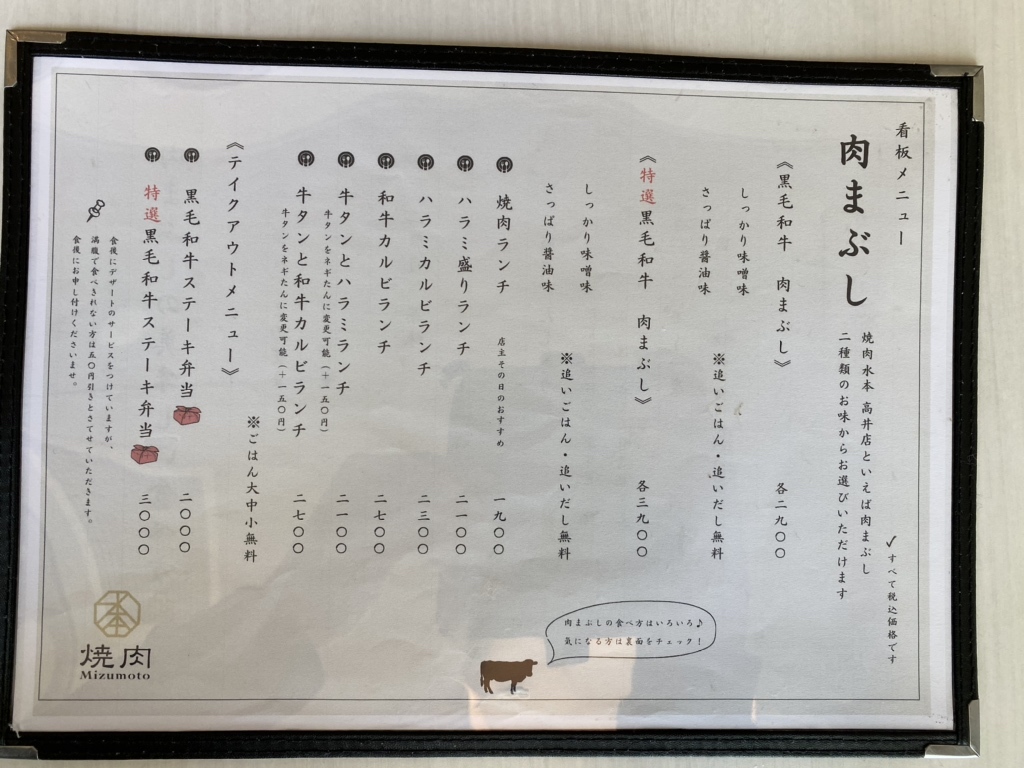 看板メニュー
✓すべて税込価格です
肉まぶし
焼肉水本 高井店といえば肉まぶし
二種類のお味からお選びいただけます
《黒毛和牛 肉まぶし》 各二九〇〇
しっかり味噌味
さっぱり醬油味
※追いごはん・追いだし無料
《特選黒毛和牛 肉まぶし》 各三九〇〇
しっかり味噌味
さっぱり醬油味
※追いごはん・追いだし無料
焼肉ランチ 店主その日のおすすめ 一九〇〇
ハラミ盛りランチ 二一〇〇
ハラミカルビランチ 二三〇〇
和牛カルビランチ 二七〇〇
牛タンとハラミランチ 二一〇〇
牛タンをネギたんに変更可能(+一五〇円)
牛タンと和牛カルビランチ 二七〇〇
牛タンをネギたんに変更可能(+一五〇円)
※ごはん大中小無料
《テイクアウトメニュー》
黒毛和牛ステーキ弁当 二〇〇〇
特選黒毛和牛ステーキ弁当 三〇〇〇
食後にデザートのサービスをつけていますが、
満腹で食べきれない方は五〇円引きとさせていただきます。
食後にお申し付けくださいませ。
肉まぶしの食べ方はいろいろ♪
気になる方は裏面をチェック!
本
焼肉
Mizumoto